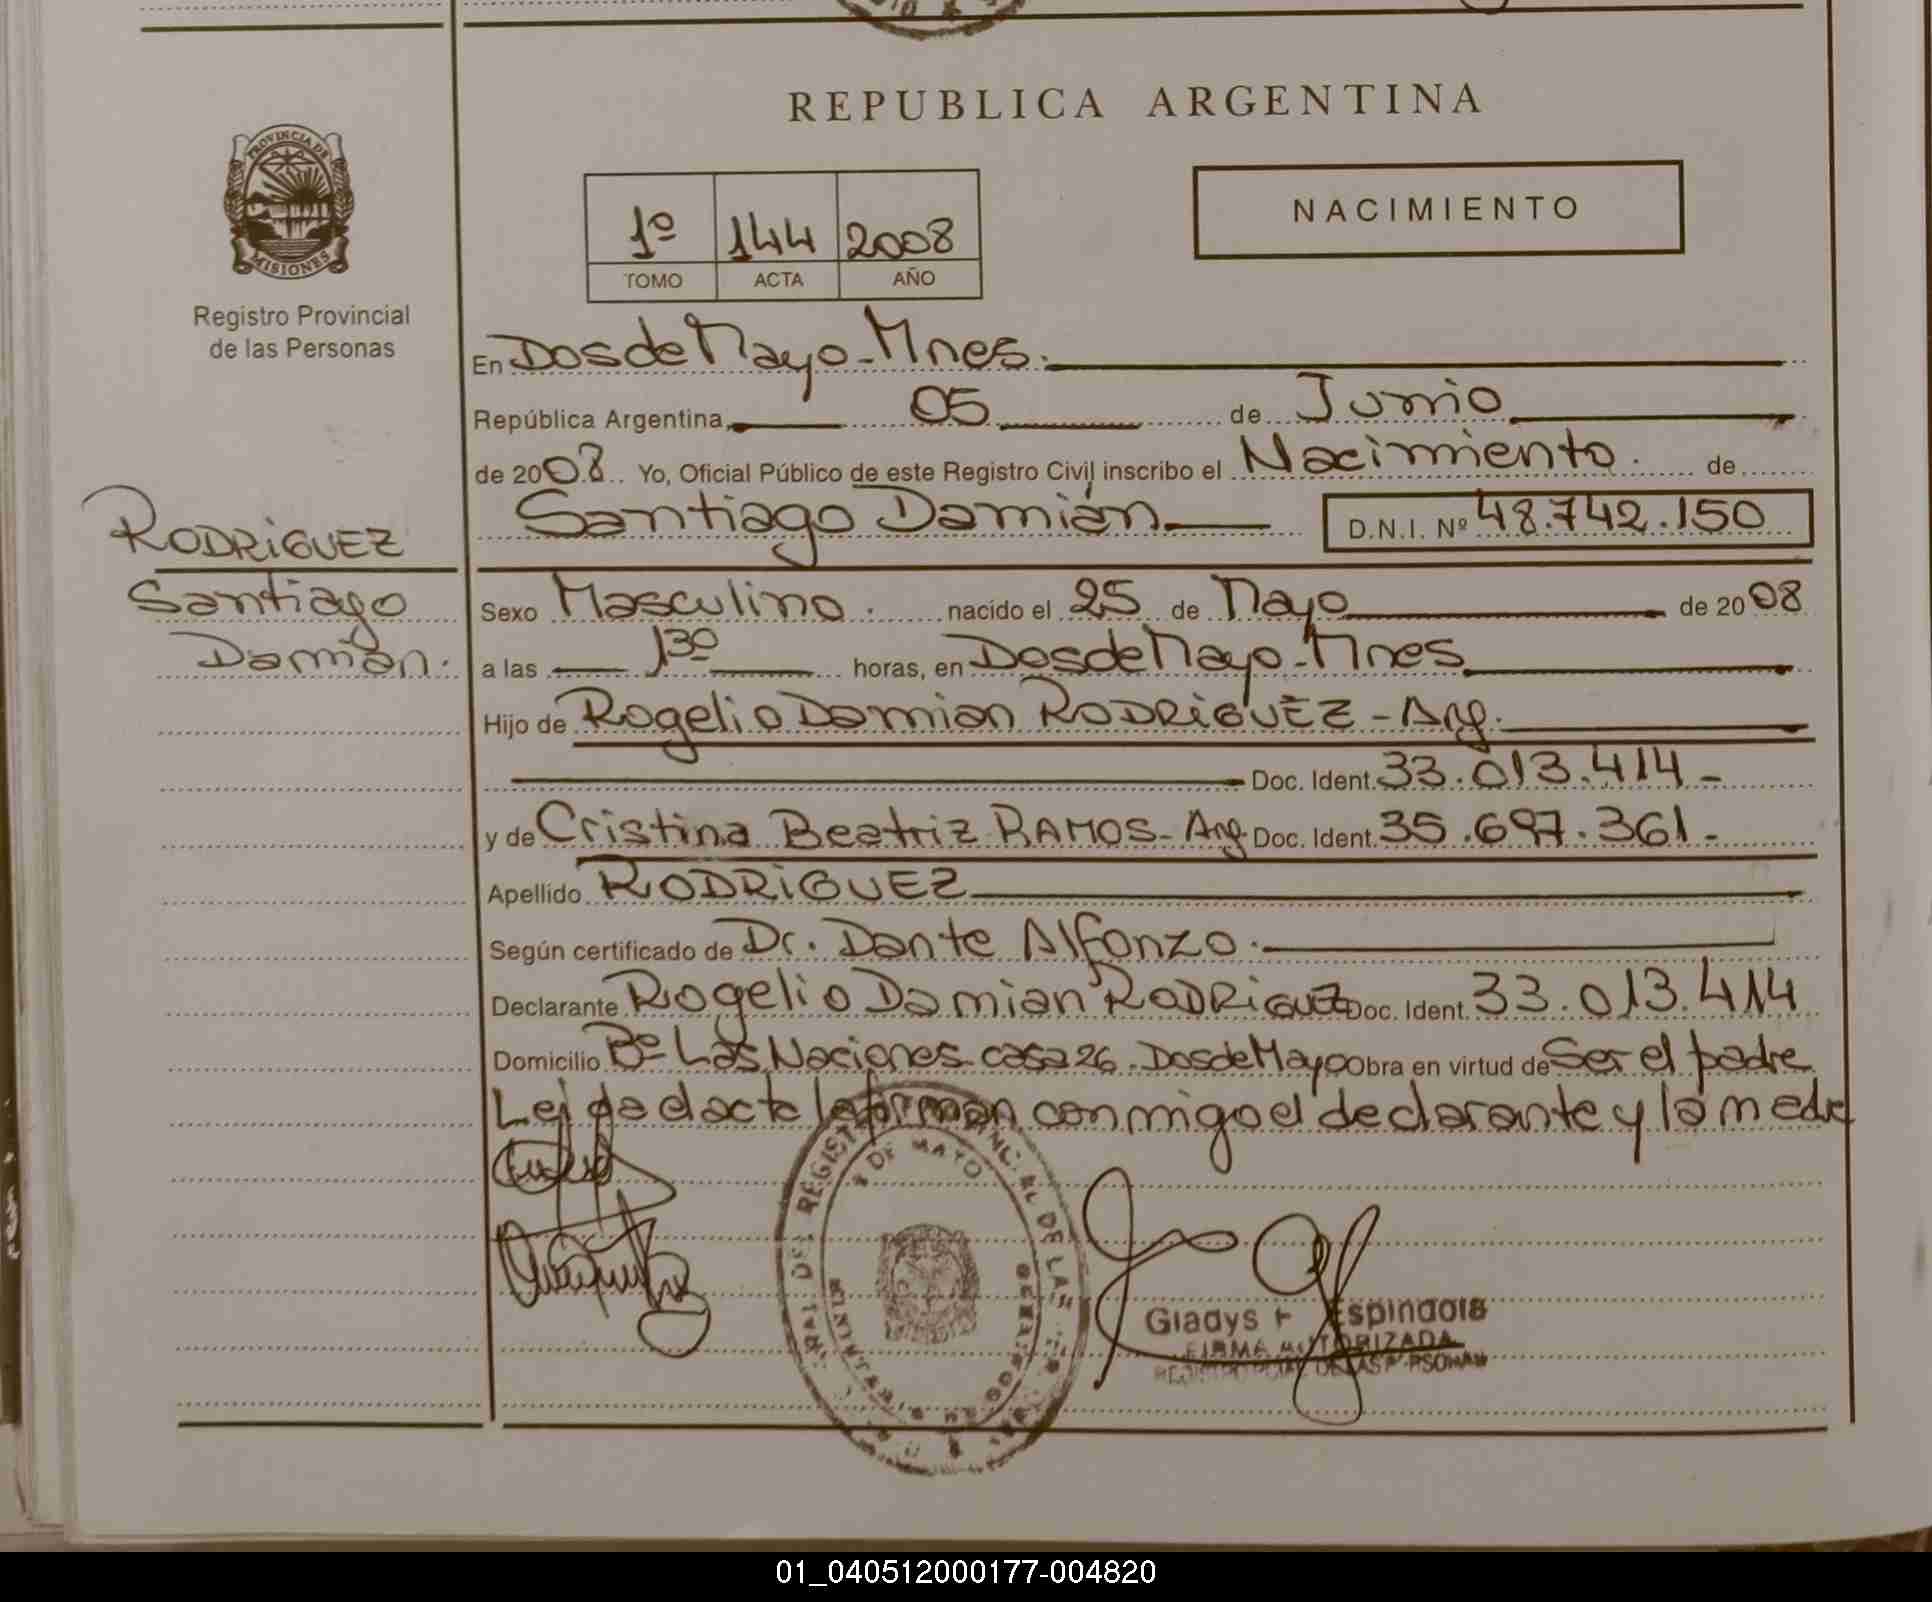 REPUBLICA ARGENTINA
PROVINCIA DE
MISIONES
Registro Provincial
de las Personas
NACIMIENTO
1º 144 2008
TOMO ACTA AÑO
En Dos de Mayo - Mnes.
República Argentina, 05 de Junio
de 2008 Yo, Oficial Público de este Registro Civil inscribo el Nacimiento. de
Santiago Damián D.N.I. Nº 48.742.150
RODRIGUEZ
Santiago
Damián.
Sexo Masculino. nacido el 25 de Mayo de 2008
a las 130 horas, en Dos de Mayo - Mnes
Hijo de Rogelio Damian RODRIGUEZ - Arg.
Doc. Ident. 33.013.414 -
y de Cristina Beatriz RAMOS - Arg. Doc. Ident. 35.697.361 -
Apellido RODRIGUEZ
Según certificado de Dr. Dante Alfonzo.
Declarante Rogelio Damian RODRIGUEZ Doc. Ident. 33.013.414
Domicilio Bº Las Naciones casa 26. Dos de Mayo Obra en virtud de Ser el padre
Leida el acta la firman conmigo el declarante y la madre
2 DE MAYO
Gladys Espindola
FIRMA AUTORIZADA
01_040512000177-004820